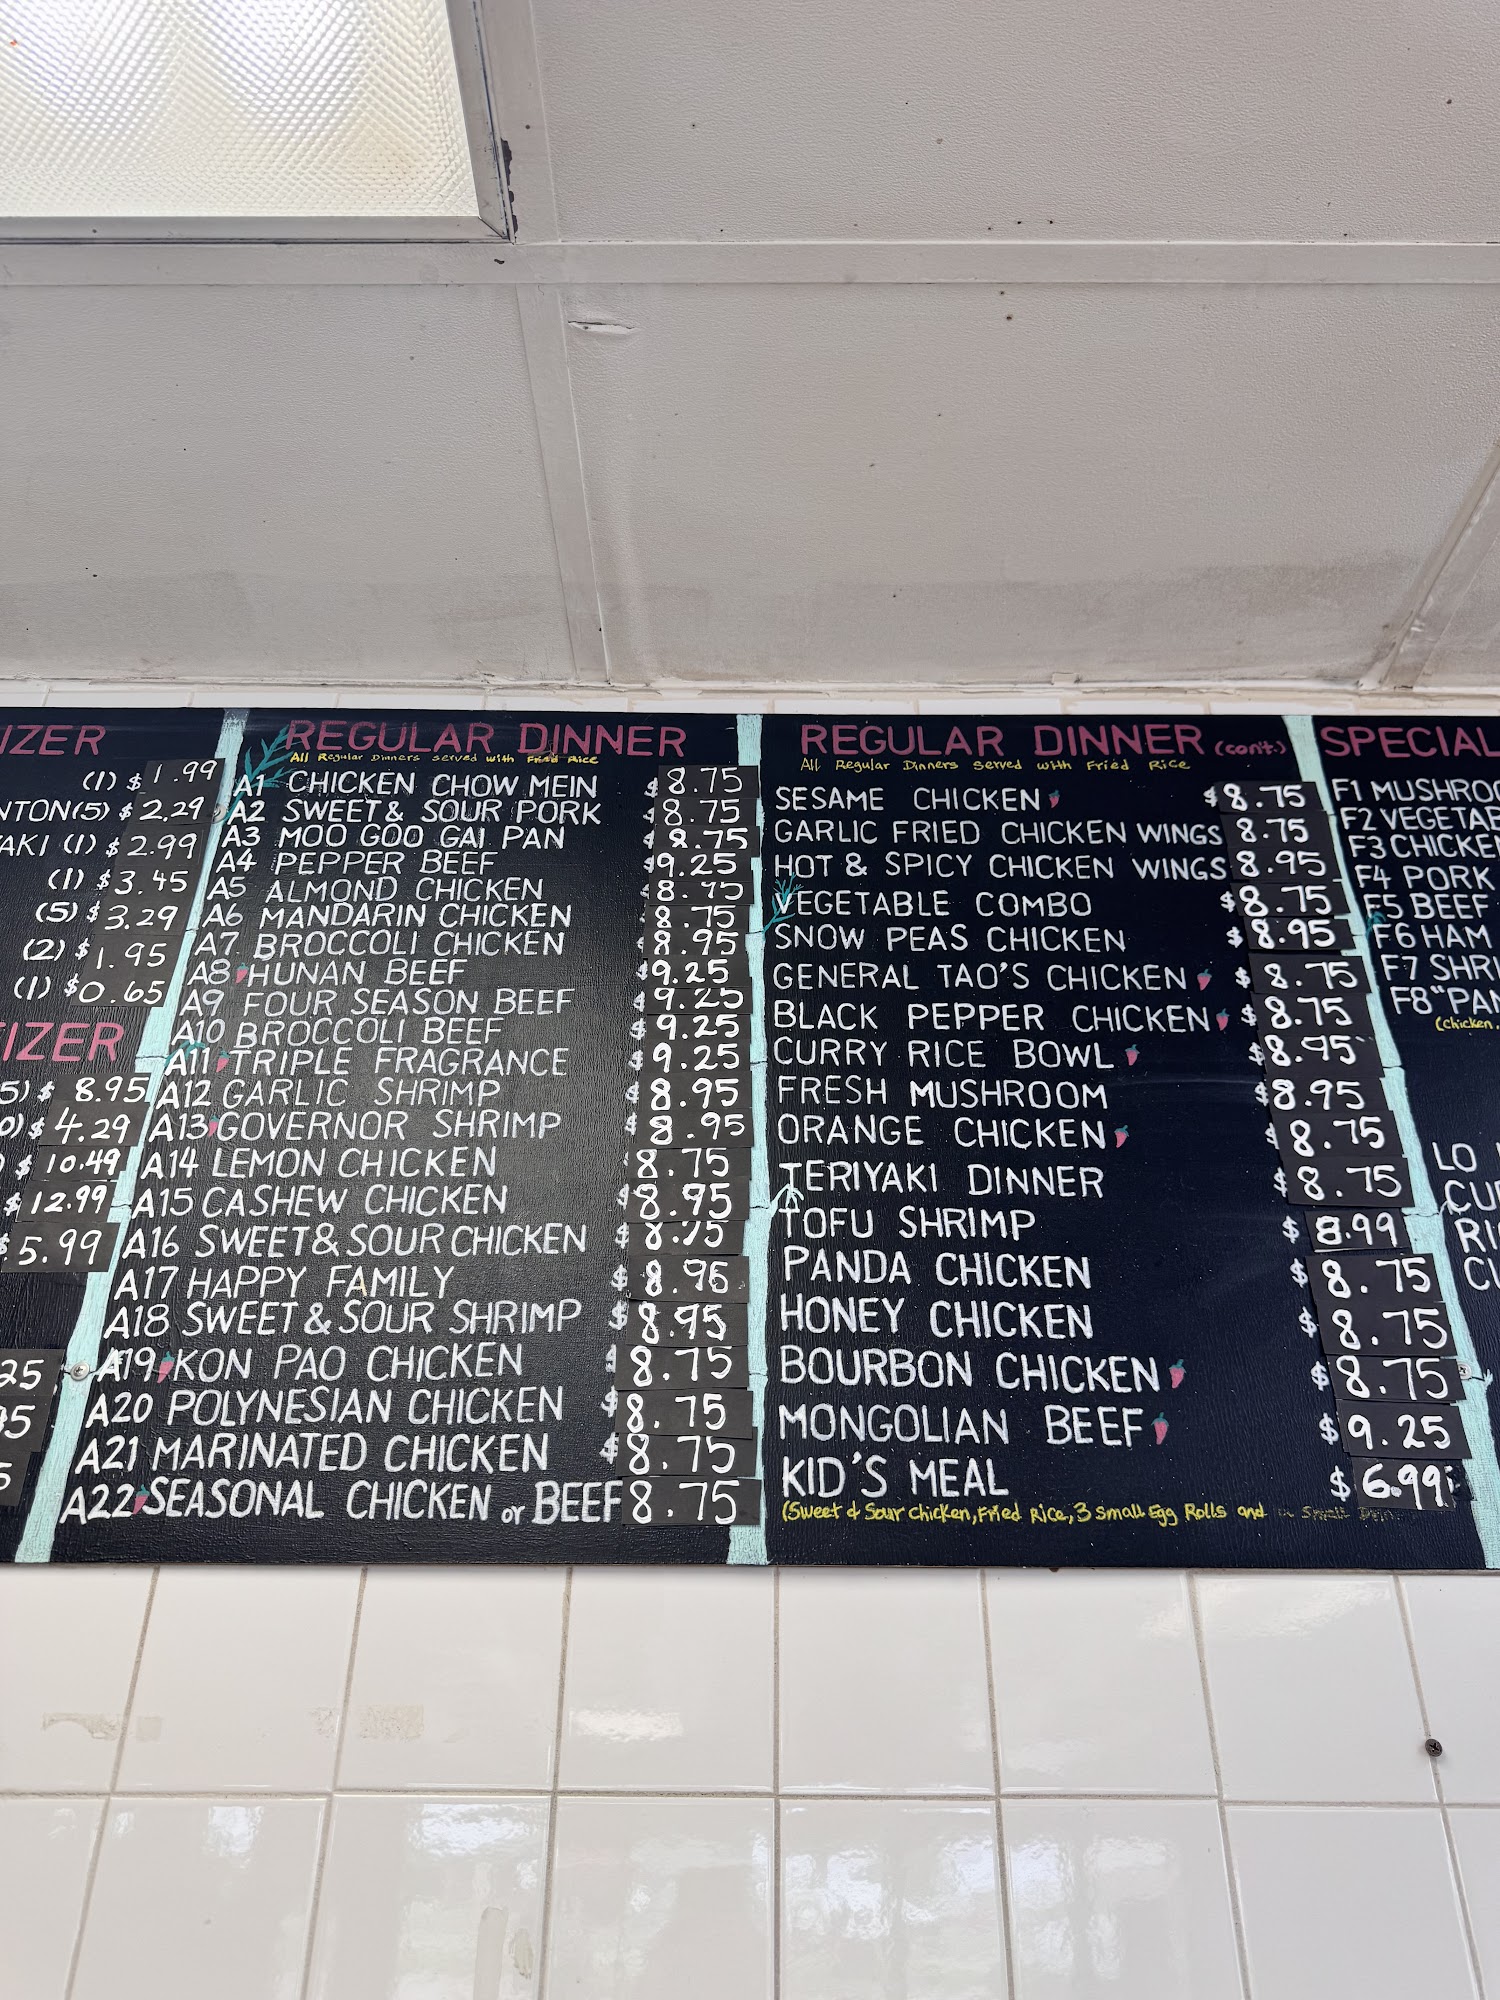 IZER
(1) $1.99
NTON(5) $2.29
AKI (1) $2.99
(1) $3.45
(5) $3.29
(2) $1.95
(1) $0.65
IZER
5) $8.95
0) $4.29
$10.49
$12.99
$5.99
25
95
5
REGULAR DINNER
All Regular Dinners served with Fried Rice
A1 CHICKEN CHOW MEIN $8.75
A2 SWEET & SOUR PORK $8.75
A3 MOO GOO GAI PAN $8.75
A4 PEPPER BEEF $9.25
A5 ALMOND CHICKEN $8.75
A6 MANDARIN CHICKEN $8.75
A7 BROCCOLI CHICKEN $8.95
A8 HUNAN BEEF $9.25
A9 FOUR SEASON BEEF $9.25
A10 BROCCOLI BEEF $9.25
A11 TRIPLE FRAGRANCE $9.25
A12 GARLIC SHRIMP $8.95
A13 GOVERNOR SHRIMP $8.95
A14 LEMON CHICKEN $8.75
A15 CASHEW CHICKEN $8.95
A16 SWEET & SOUR CHICKEN $8.75
A17 HAPPY FAMILY $8.95
A18 SWEET & SOUR SHRIMP $8.95
A19 KON PAO CHICKEN $8.75
A20 POLYNESIAN CHICKEN $8.75
A21 MARINATED CHICKEN $8.75
A22 SEASONAL CHICKEN or BEEF 8.75
REGULAR DINNER (con't.)
All Regular Dinners served with Fried Rice
SESAME CHICKEN $8.75
GARLIC FRIED CHICKEN WINGS 8.75
HOT & SPICY CHICKEN WINGS 8.95
VEGETABLE COMBO $8.75
SNOW PEAS CHICKEN $8.95
GENERAL TAO'S CHICKEN $8.75
BLACK PEPPER CHICKEN $8.75
CURRY RICE BOWL $8.95
FRESH MUSHROOM $8.95
ORANGE CHICKEN $8.75
TERIYAKI DINNER $8.75
TOFU SHRIMP $8.99
PANDA CHICKEN $8.75
HONEY CHICKEN $8.75
BOURBON CHICKEN $8.75
MONGOLIAN BEEF $9.25
KID'S MEAL $6.99
(Sweet & Sour Chicken, Fried Rice, 3 Small Egg Rolls and a Small
SPECIAL
F1 MUSHROO
F2 VEGETAB
F3 CHICKE
F4 PORK
F5 BEEF
F6 HAM
F7 SHRI
F8 "PAN
(Chicken,
LO
CU
RI